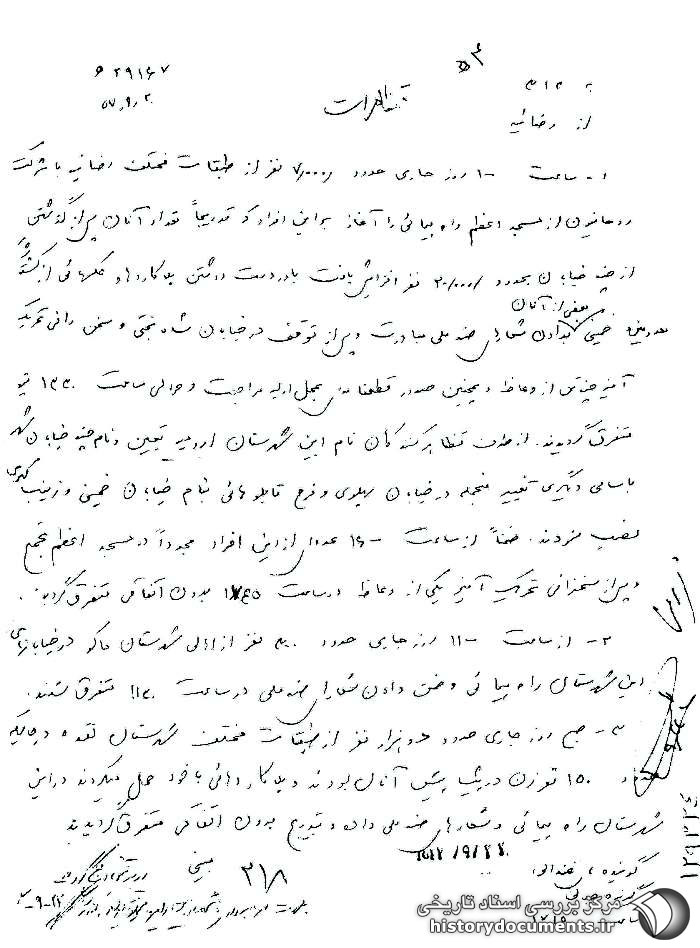 به ۳۱۲
از رضائیه
تظاهرات
۲۹۱۶۷
۵۷٫۹٫۲۰
۱- ساعت ۱۰۰۰ روز جاری حدود ۷۰۰۰ نفر از طبقات مختلف رضائیه با شرکت
روحانیون از مسجد اعظم راه پیمائی را آغاز براین افراد که تدریجاً تعداد آنان پس از گذشتن
از چند خیابان بحدود ۲۰٫۰۰۰ نفر افزایش یافت با در دست داشتن پلاکاردها و عکسهائی از
خمینی بعضی از آنان بدادن شعارهای ضد ملی مبادرت و پس از توقف در خیابان شاه تختی و سخن رانی تحریک
آمیز چند تن از وعاظ و همچنین صدور قطعنامه‌ای بمحل اولیه مراجعت و حوالی ساعت ۱۳۳۰
متفرق گردیدند. از طرف تظاهرکنندگان نام این شهرستان ارومیه تعیین و نام چند خیابان شهر
باسامی دیگری تغییر منجمله در خیابان پهلوی و فرح تابلوهائی بنام خیابان خمینی و زینب کبری
نصب نمودند. ضمناً از ساعت ۱۶۰۰ عده‌ای از این افراد مجدداً در مسجد اعظم تجمع
و پس از سخنرانی تحریک آمیز یکی از وعاظ در ساعت بدون اتفاقی متفرق گردیدند.
۲- از ساعت ۱۱۰۰ روز جاری حدود نفر از اهالی شهرستان ماکو در خیابانهای
این شهرستان راه پیمائی و ضمن دادن شعارهای ضد ملی در ساعت ۱۱۳۰ متفرق شدند.
۳- صبح روز جاری حدود هزار نفر از طبقات مختلف شهرستان نقده در حالیکه
۱۵۰ نفر زن در پیشاپیش آنان بودند و پلاکاردهائی با خود حمل میکردند در این
شهرستان راه پیمائی و شعارهای ضد ملی داده و بتدریج بدون اتفاقی متفرق گردیدند
گوینده
۳۱۸
مرکز بررسی اسناد تاریخی
historydocuments.ir